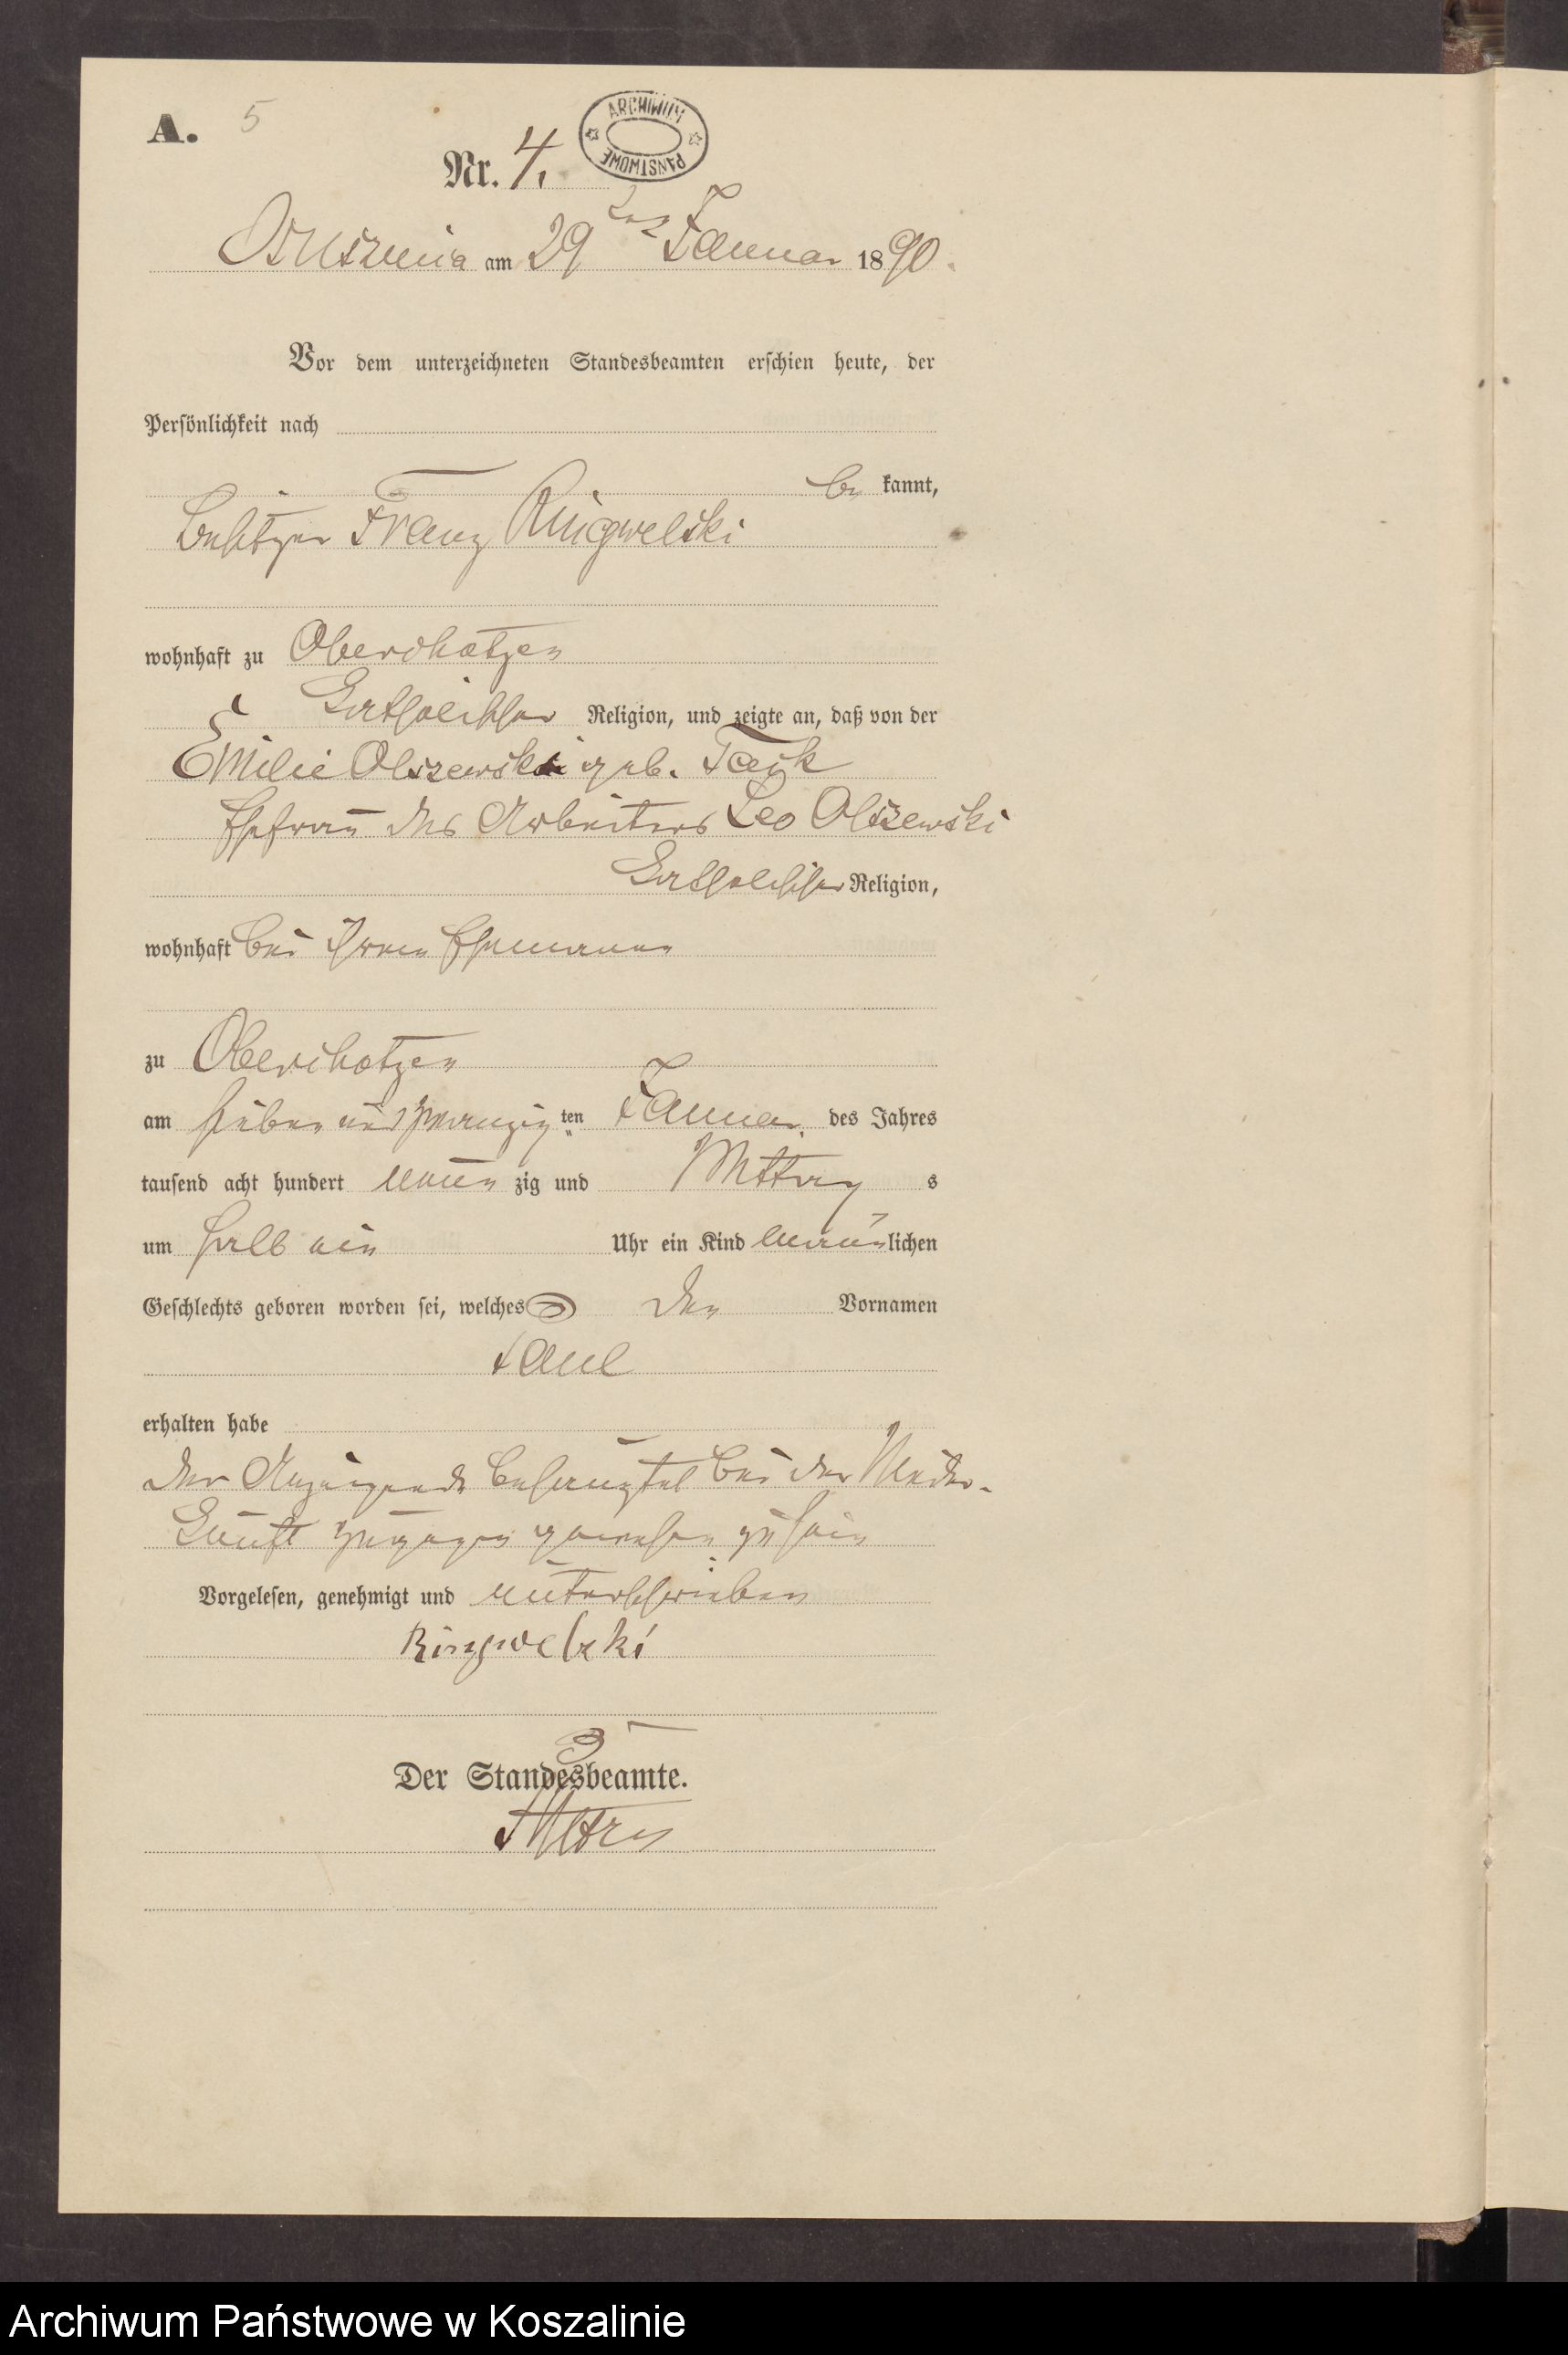 A. 5
ARCHIWUM PAŃSTWOWE
Nr. 4.
Osuszniça am 29ten Januar 1890.
Vor dem unterzeichneten Standesbeamten erschien heute, der
Persönlichkeit nach
be kannt,
Besitzer Franz Ringwelski
wohnhaft zu
katholischer Religion, und zeigte an, daß von der
Emilie Olszewski geb.
Ehefrau des Arbeiters Leo Olszewski
katholischer Religion,
wohnhaft bei ihrem Ehemanne
zu
am sieben und zwanzig ten Januar des Jahres
tausend acht hundert neun zig und Mittag s
um halb ein Uhr ein Kind männlichen
Geschlechts geboren worden sei, welches den Vornamen
Paul
erhalten habe
Der Anzeigende behauptet bei der Nieder-
kunft zugegen gewesen zu sein
Vorgelesen, genehmigt und unterschrieben
Ringwelski
Der Standesbeamte.
Archiwum Państwowe w Koszalinie